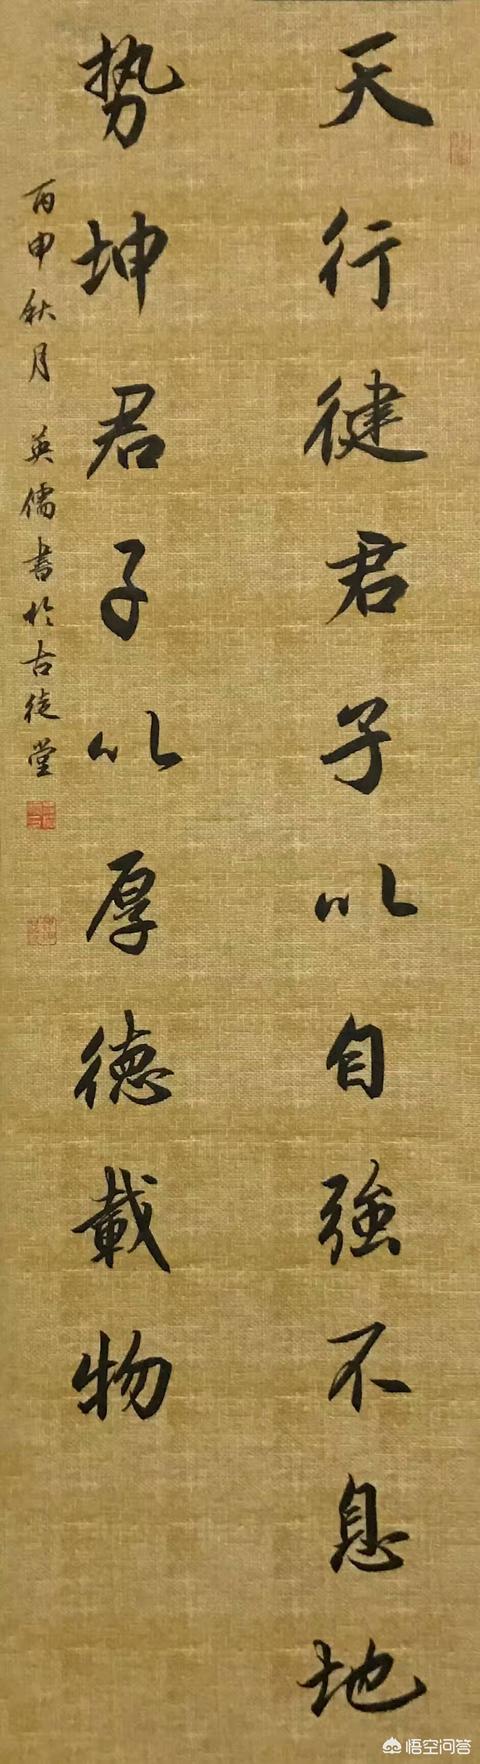 天行健君子以自強不息地
势坤君子以厚德載物
丙申秋月 英儒書於古徒堂
悟空问答